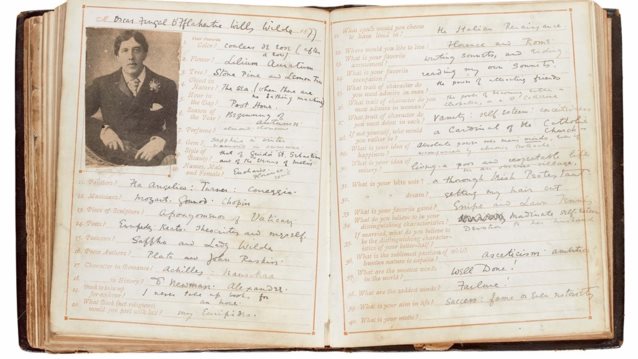 Oscar Fingal O'Flahertie Wills Wilde 1877
Your Favorite
Color?
Flower? Lilium Auratum
Tree? Stone Pine and Lemon Tree
Object in Nature? The Sea (when there are no bathing machines)
Hour in the Day? Post Hour.
Season of the Year? Beginning of Autumn
Perfume? almond blossom
Gem? Sapphire in winter
diamond in summer
Style of Beauty? that of Guido's St. Sebastian
and of the Venus of Melos
Names, Male and Female?
11. Painters? Fra Angelico: Turner: Correggio.
12. Musicians? Mozart. Gounod. Chopin
13. Piece of Sculpture? Apoxyomenos of Vatican
14. Poets? Euripides, Keats: Theocritus and myself.
15. Poetesses? Sappho and Lady Wilde
16. Prose Authors? Plato and John Ruskin
17. Character in Romance? Achilles
in History? Dr. Newman. Alexander.
19. Book to take up for an hour? I never take up books for an hour.
20. What book (not religious) would you part with last? my Euripides.
21. What epoch would you choose to have lived in? the Italian Renaissance
22. Where would you like to live? Florence and Rome.
What is your favorite amusement? writing sonnets, and riding
What is your favorite occupation? reading my own sonnets.
What trait of character do you most admire in man? the power of attracting friends
What trait of character do you most admire in woman?
What trait of character do you most detest in each? Vanity: self esteem: conceitedness
If not yourself, who would you rather be? a Cardinal of the Catholic Church
What is your idea of happiness? absolute power over men's minds
What is your idea of misery? living a poor and respectable life in an obscure village.
What is your bête noir? a thorough Irish Protestant
dream? getting my hair cut
What is your favorite game? Snipe and Lawn Tennis
What do you believe to be your distinguishing characteristics? inordinate self esteem
If married, what do you believe to be the distinguishing characteristics of your better-half? devotion to her husband
What is the sublimest passion of which human nature is capable? asceticism ambition
What are the sweetest words in the world? Well Done!
What are the saddest words? Failure!
39. What is your aim in life? Success: fame or even notoriety
40. What is your motto?